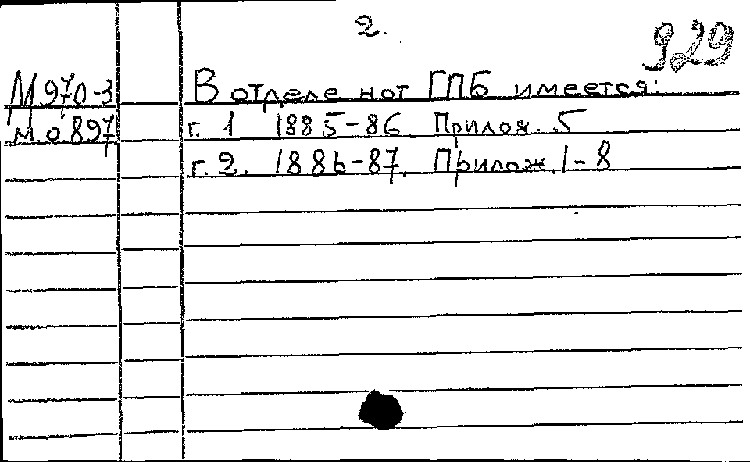 2.
929
М970-3 В отделе нот ГПБ имеется:
М.о 897 г. 1 1885-86 Прилож. 5
г. 2. 1886-87. Прилож. 1-8